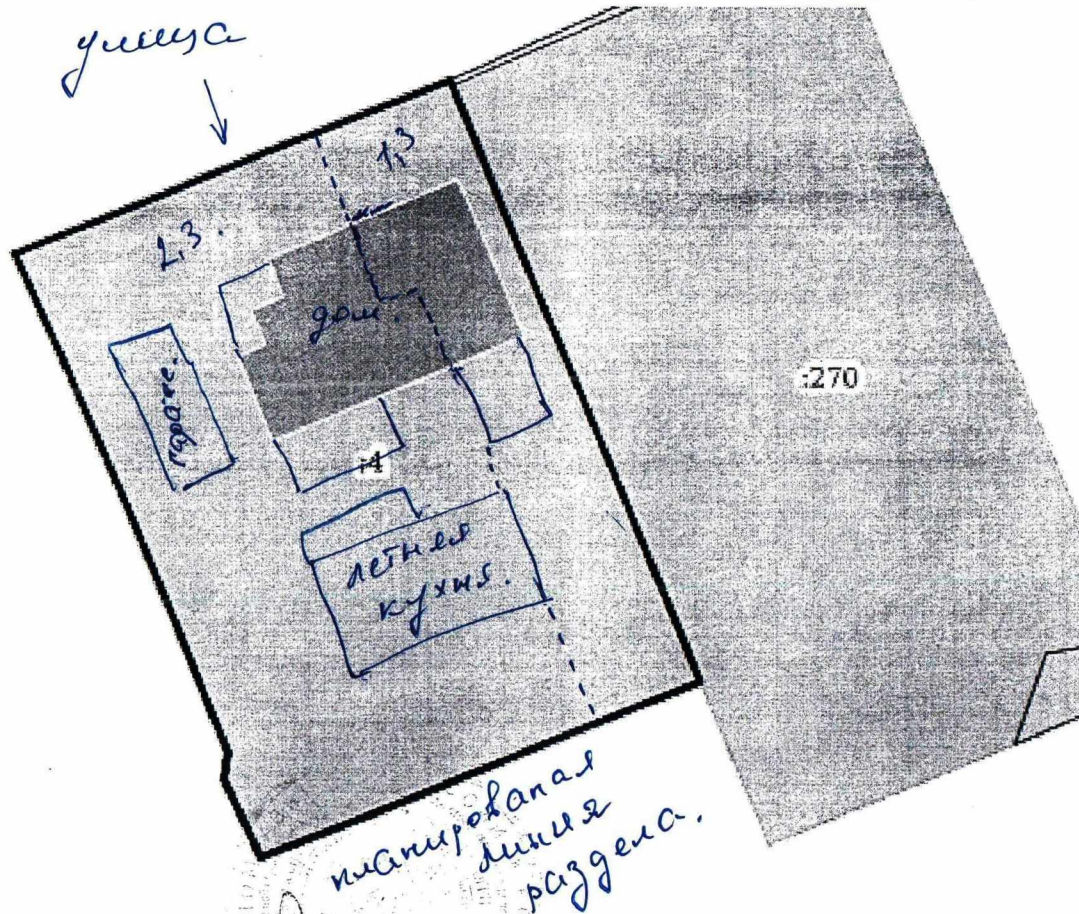 улица
1,3
2,3.
дом.
гараж.
:270
:4
летняя
кухня.
планированая
линия
раздела.